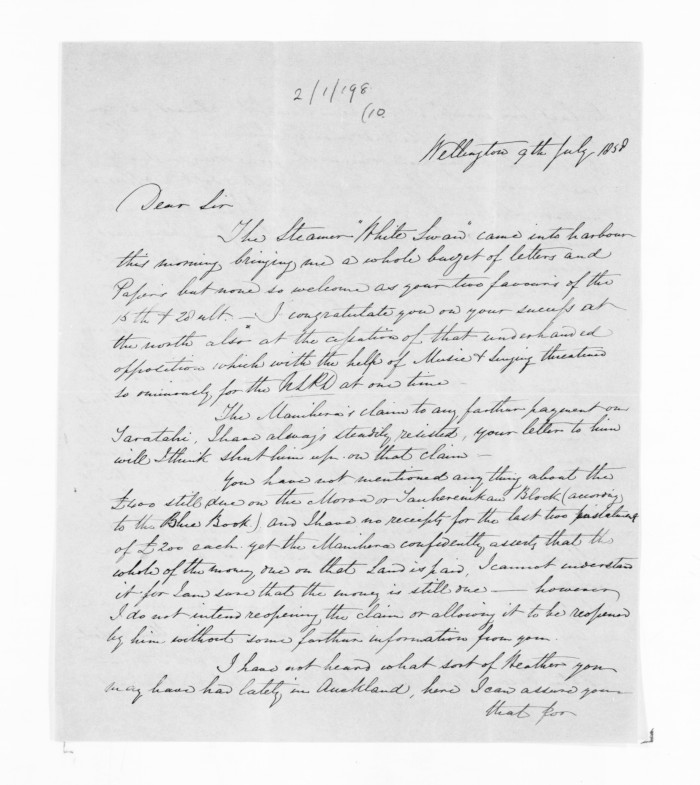 2/1/198
(10.
Wellington 9th July 1858
Dear Sir
The Steamer "White Swan" came into harbour
this morning, bringing me a whole budget of letters and
Papers but none so welcome as your two favours of the
15th & 20 ult. — I congratulate you on your success at
the north also at the cessation of that underhanded
opposition which with the help of Music & Singing threatened
so ominously for the NLPD at one time —
The Manihera's claim to any farther payment on
Taratahi, I have always steadily resisted, your letter to him
will I think shut him up on that claim —
You have not mentioned anything about the
£400 still due on the Moroa or Tauherenikau Block (according
to the Blue Book) and I have no receipts for the last two
of £200 each. yet the Manihera confidently asserts that the
whole of the money due on that Land is paid, I cannot understand
it for I am sure that the money is still due — however
I do not intend reopening the claim or allowing it to be reopened
by him without some farther information from you.
I have not heard what sort of Weather you
may have had lately in Auckland, here I can assure you
that for